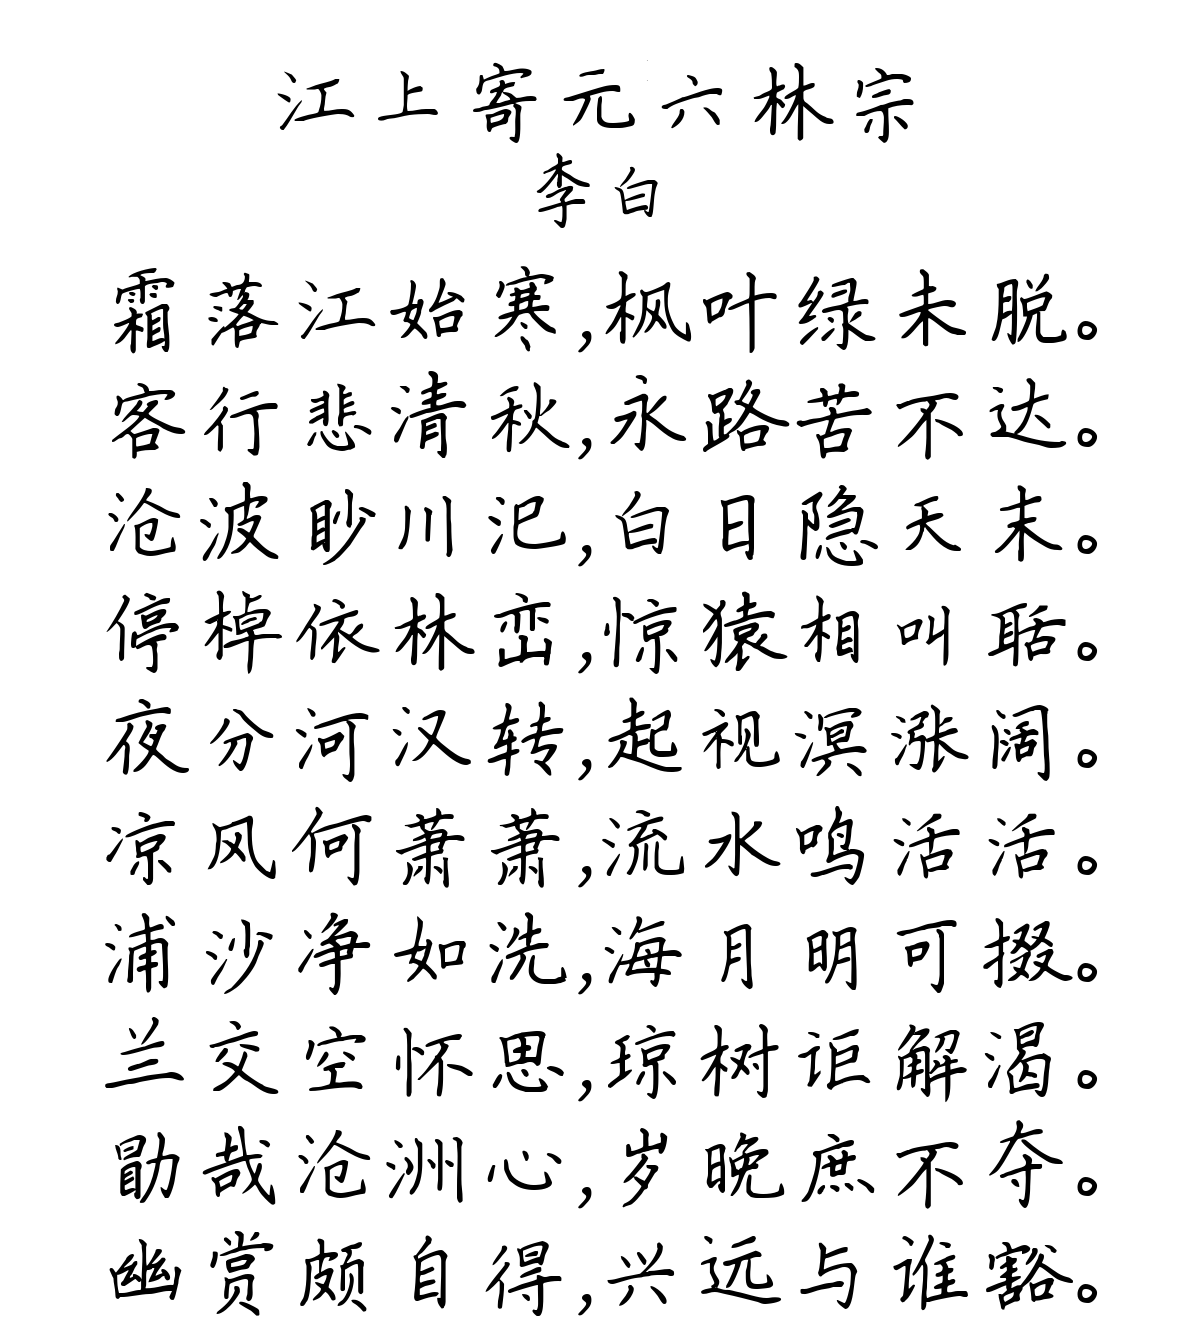 江上寄元六林宗
李白
霜落江始寒,枫叶绿未脱。
客行悲清秋,永路苦不达。
沧波眇川汜,白日隐天末。
停棹依林峦,惊猿相叫聒。
夜分河汉转,起视溟涨阔。
凉风何萧萧,流水鸣活活。
浦沙净如洗,海月明可掇。
兰交空怀思,琼树讵解渴。
勖哉沧洲心,岁晚庶不夺。
幽赏颇自得,兴远与谁豁。